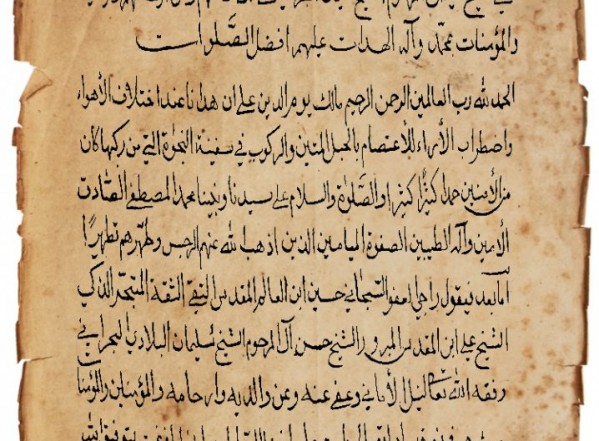 والمؤمنات بمحمد وآله الهداة عليهم افضل الصلوات
الحمد لله رب العالمين الرحمن الرحيم مالك يوم الدين على ان هدانا عند اختلاف الأهواء
واضطراب الأراء للاعتصام بالحبل المتين والركوب في سفينة النجوة التي من ركبها كان
من الأمنين حمدا كثيرا كثيرا والصلوة والسلام على سيدنا ونبينا محمد المصطفى الصادق
الامين وآله الطيبين الصفوة الميامين الذين اذهب الله عنهم الرجس وطهرهم تطهيرا
اما بعد فيقول راجي العفو السبحاني حسين ابن العالم المقدس التقي الثقة المتبحر الذكي
الشيخ علي ابن المقدس المبرور الشيخ حسن آل المرحوم الشيخ سليمان البلادي البحراني
وفقه الله تعالى لنيل الأماني وعفى عنه وعن والديه وارحامه والمؤمنين والمؤمنات